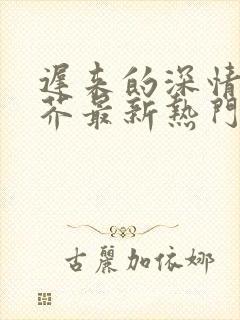 遲来的深情
芥最新熱門
古麗加依娜